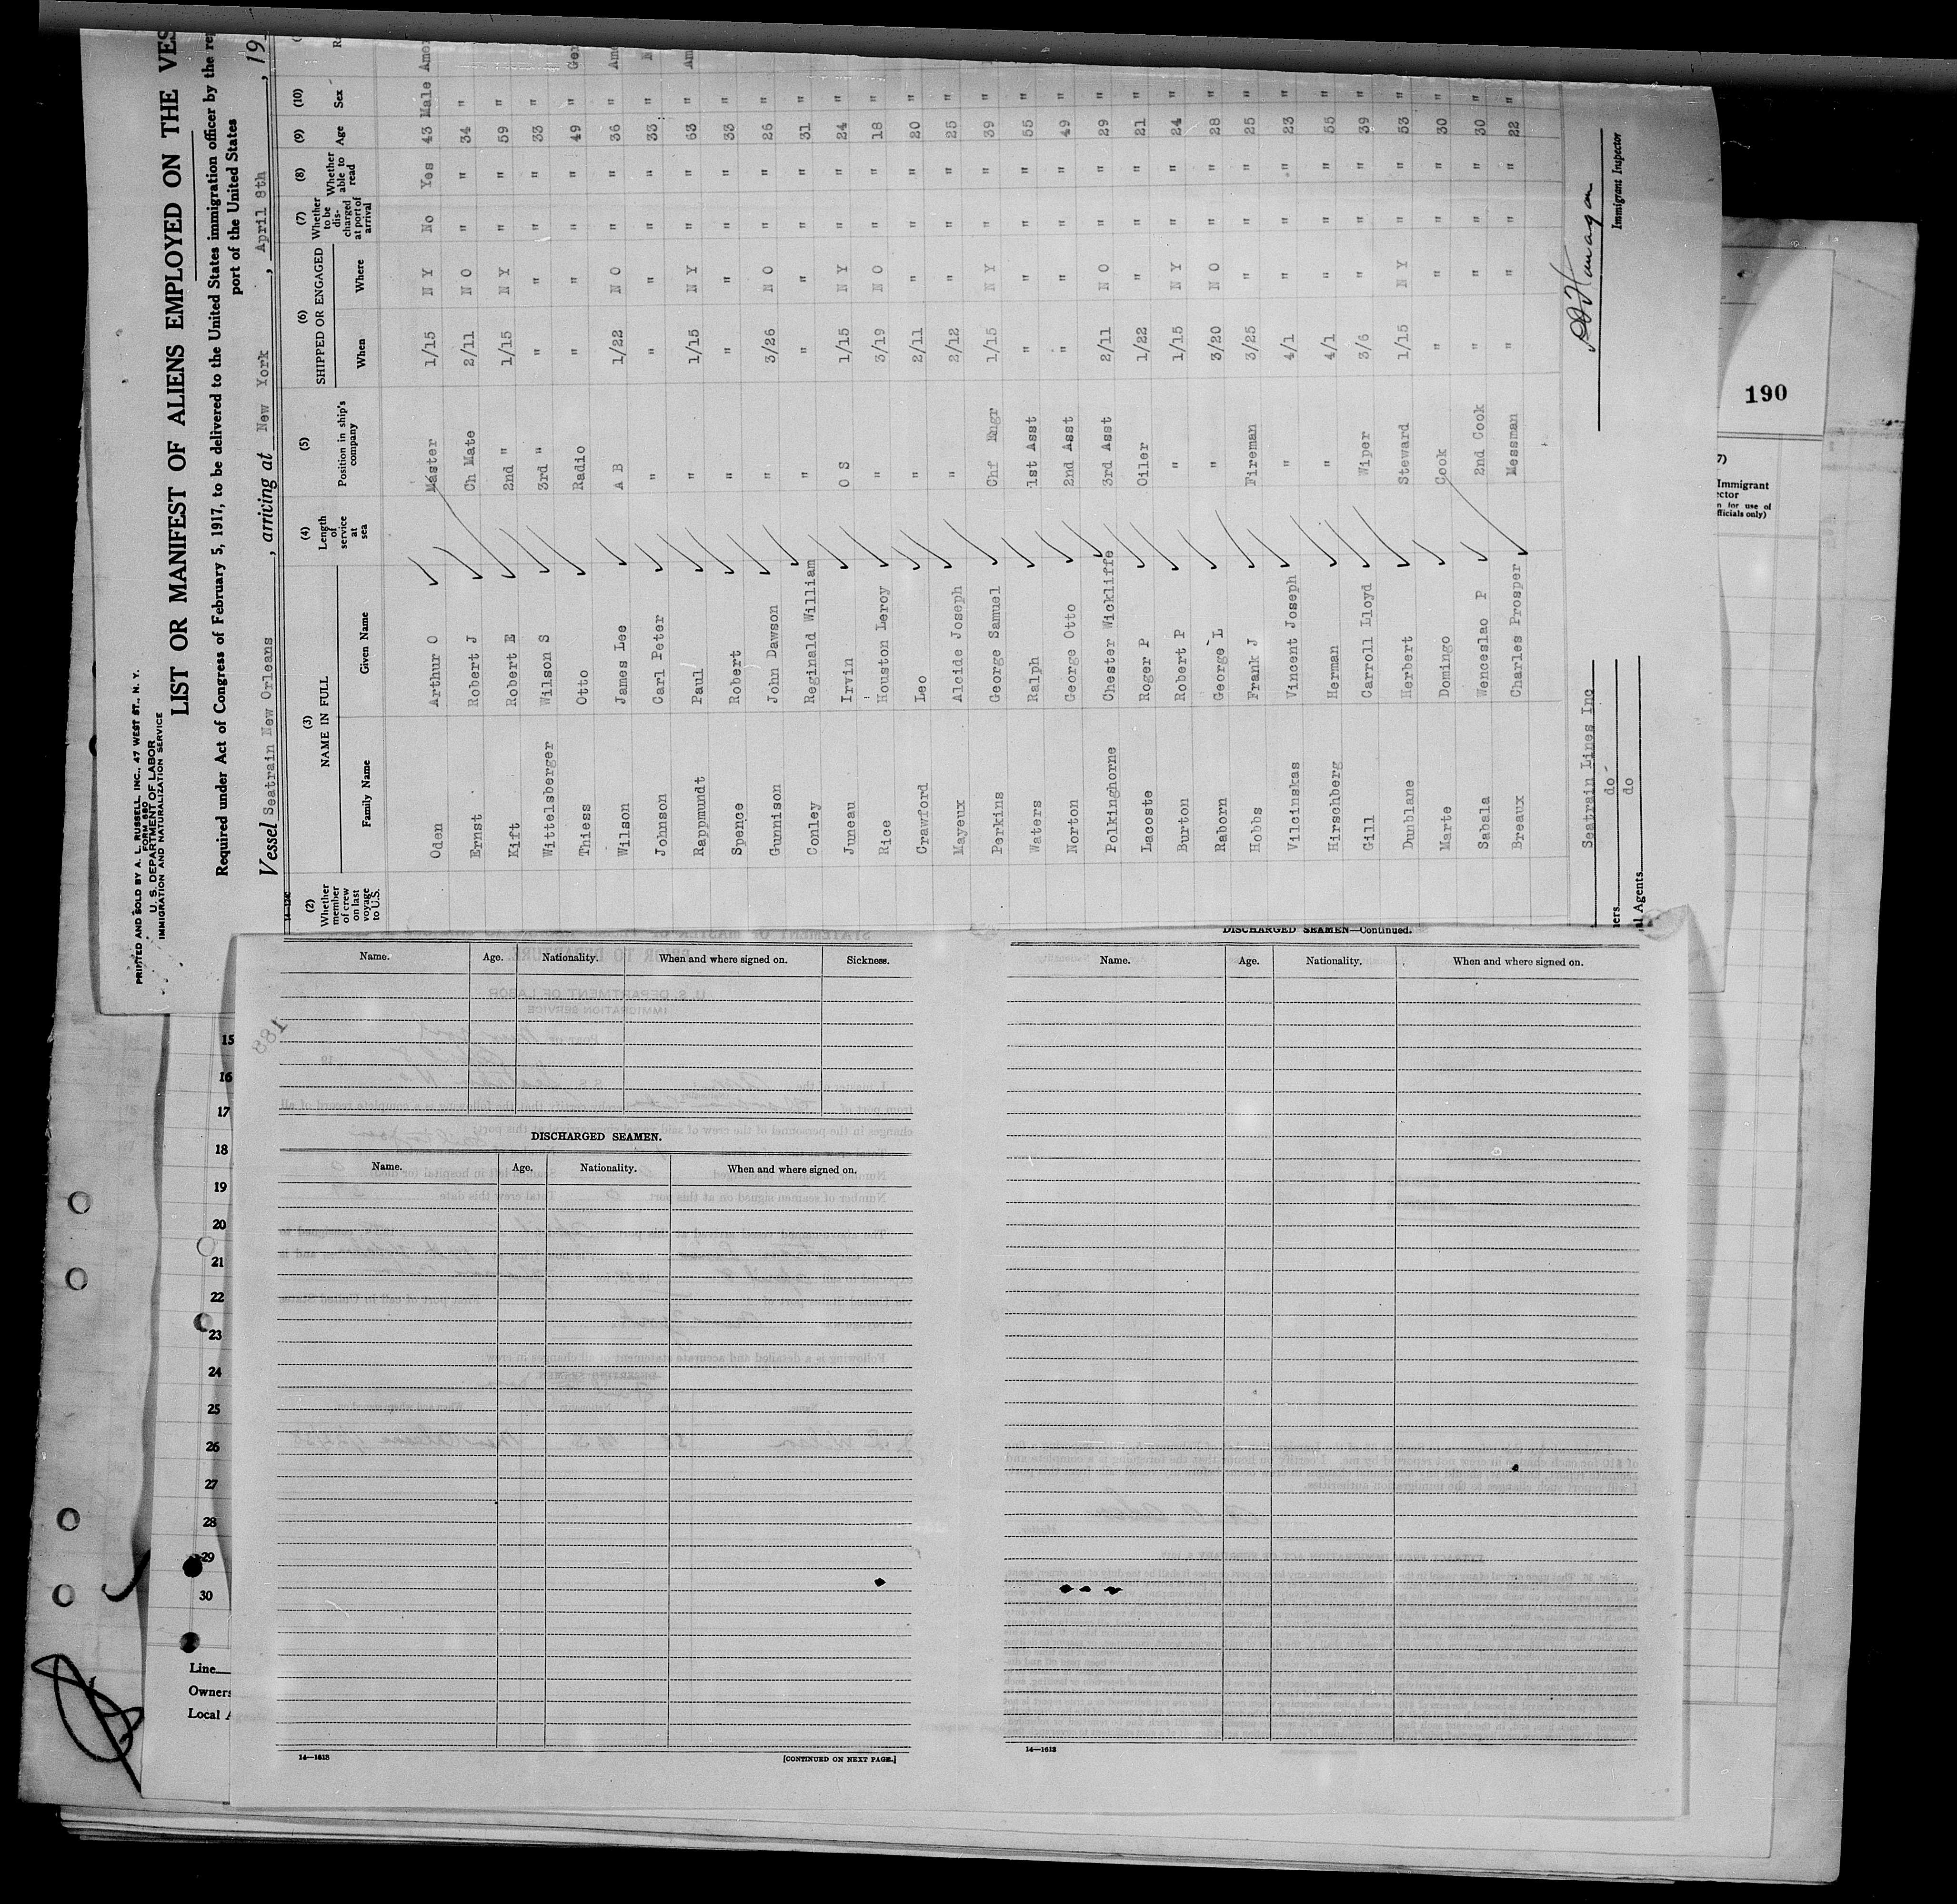 PRINTED AND SOLD BY A. L. RUSSELL, INC., 47 WEST ST., N. Y.
FORM 680
U. S. DEPARTMENT OF LABOR
IMMIGRATION AND NATURALIZATION SERVICE
LIST OR MANIFEST OF ALIENS EMPLOYED ON THE VES
Required under Act of Congress of February 5, 1917, to be delivered to the United States immigration officer by the rep
port of the United States
Vessel Seatrain New Orleans, arriving at New York, April 8th, 19
(2) Whether member of crew on last voyage to U.S. (3) NAME IN FULL Family Name Given Name (4) Length of service at sea (5) Position in ship's company (6) SHIPPED OR ENGAGED When Where (7) Whether to be discharged at port of arrival (8) Whether able to read (9) Age (10) Sex
Oden Arthur O Master 1/15 N Y No Yes 43 Male Amer
Ernst Robert J Ch Mate 2/11 N O " " 34 "
Kift Robert E 2nd " 1/15 N Y " " 59 "
Wittelsberger Wilson S 3rd " " " " " 33 "
Thiess Otto Radio " " " " 49 " Ger
Wilson James Lee A B 1/22 N O " " 36 " Ame
Johnson Carl Peter " " " " " 33 "
Rappmundt Paul " 1/15 N Y " " 63 " Am
Spence Robert " " " " " 33 "
Gunnison John Dawson " 3/26 N O " " 26 "
Conley Reginald William " " " " " 31 "
Juneau Irvin O S 1/15 N Y " " 24 "
Rice Houston Leroy " 3/19 N O " " 18 "
Crawford Leo " 2/11 " " " 20 "
Mayeux Alcide Joseph " 2/12 " " " 25 "
Perkins George Samuel Chf Engr 1/15 N Y " " 39 "
Waters Ralph 1st Asst " " " " 55 "
Norton George Otto 2nd Asst " " " " 49 "
Polkinghorne Chester Wickliffe 3rd Asst 2/11 N O " " 29 "
Lacoste Roger P Oiler 1/22 " " " 21 "
Burton Robert P " 1/15 N Y " " 24 "
Raborn George L " 3/20 N O " " 28 "
Hobbs Frank J Fireman 3/25 " " " 25 "
Vilcinskas Vincent Joseph " 4/1 " " " 23 "
Hirschberg Herman " 4/1 " " " 55 "
Gill Carroll Lloyd Wiper 3/6 " " " 39 "
Dunblane Herbert Steward 1/15 N Y " " 53 "
Marte Domingo Cook " " " " 30 "
Sabala Wenceslao P 2nd Cook " " " " 30 "
Breaux Charles Prosper Messman " " " " 22 "
Seatrain Lines Inc
ners do
al Agents do
Immigrant Inspector
190
7)
Immigrant
ector
n for use of
fficials only)
Name. Age. Nationality. When and where signed on. Sickness.
DISCHARGED SEAMEN.
Name. Age. Nationality. When and where signed on.
14—1613 [CONTINUED ON NEXT PAGE.]
DISCHARGED SEAMEN—Continued.
Name. Age. Nationality. When and where signed on.
14—1613
15
16
17
18
19
20
21
22
23
24
25
26
27
28
29
30
Line
Owners
Local A